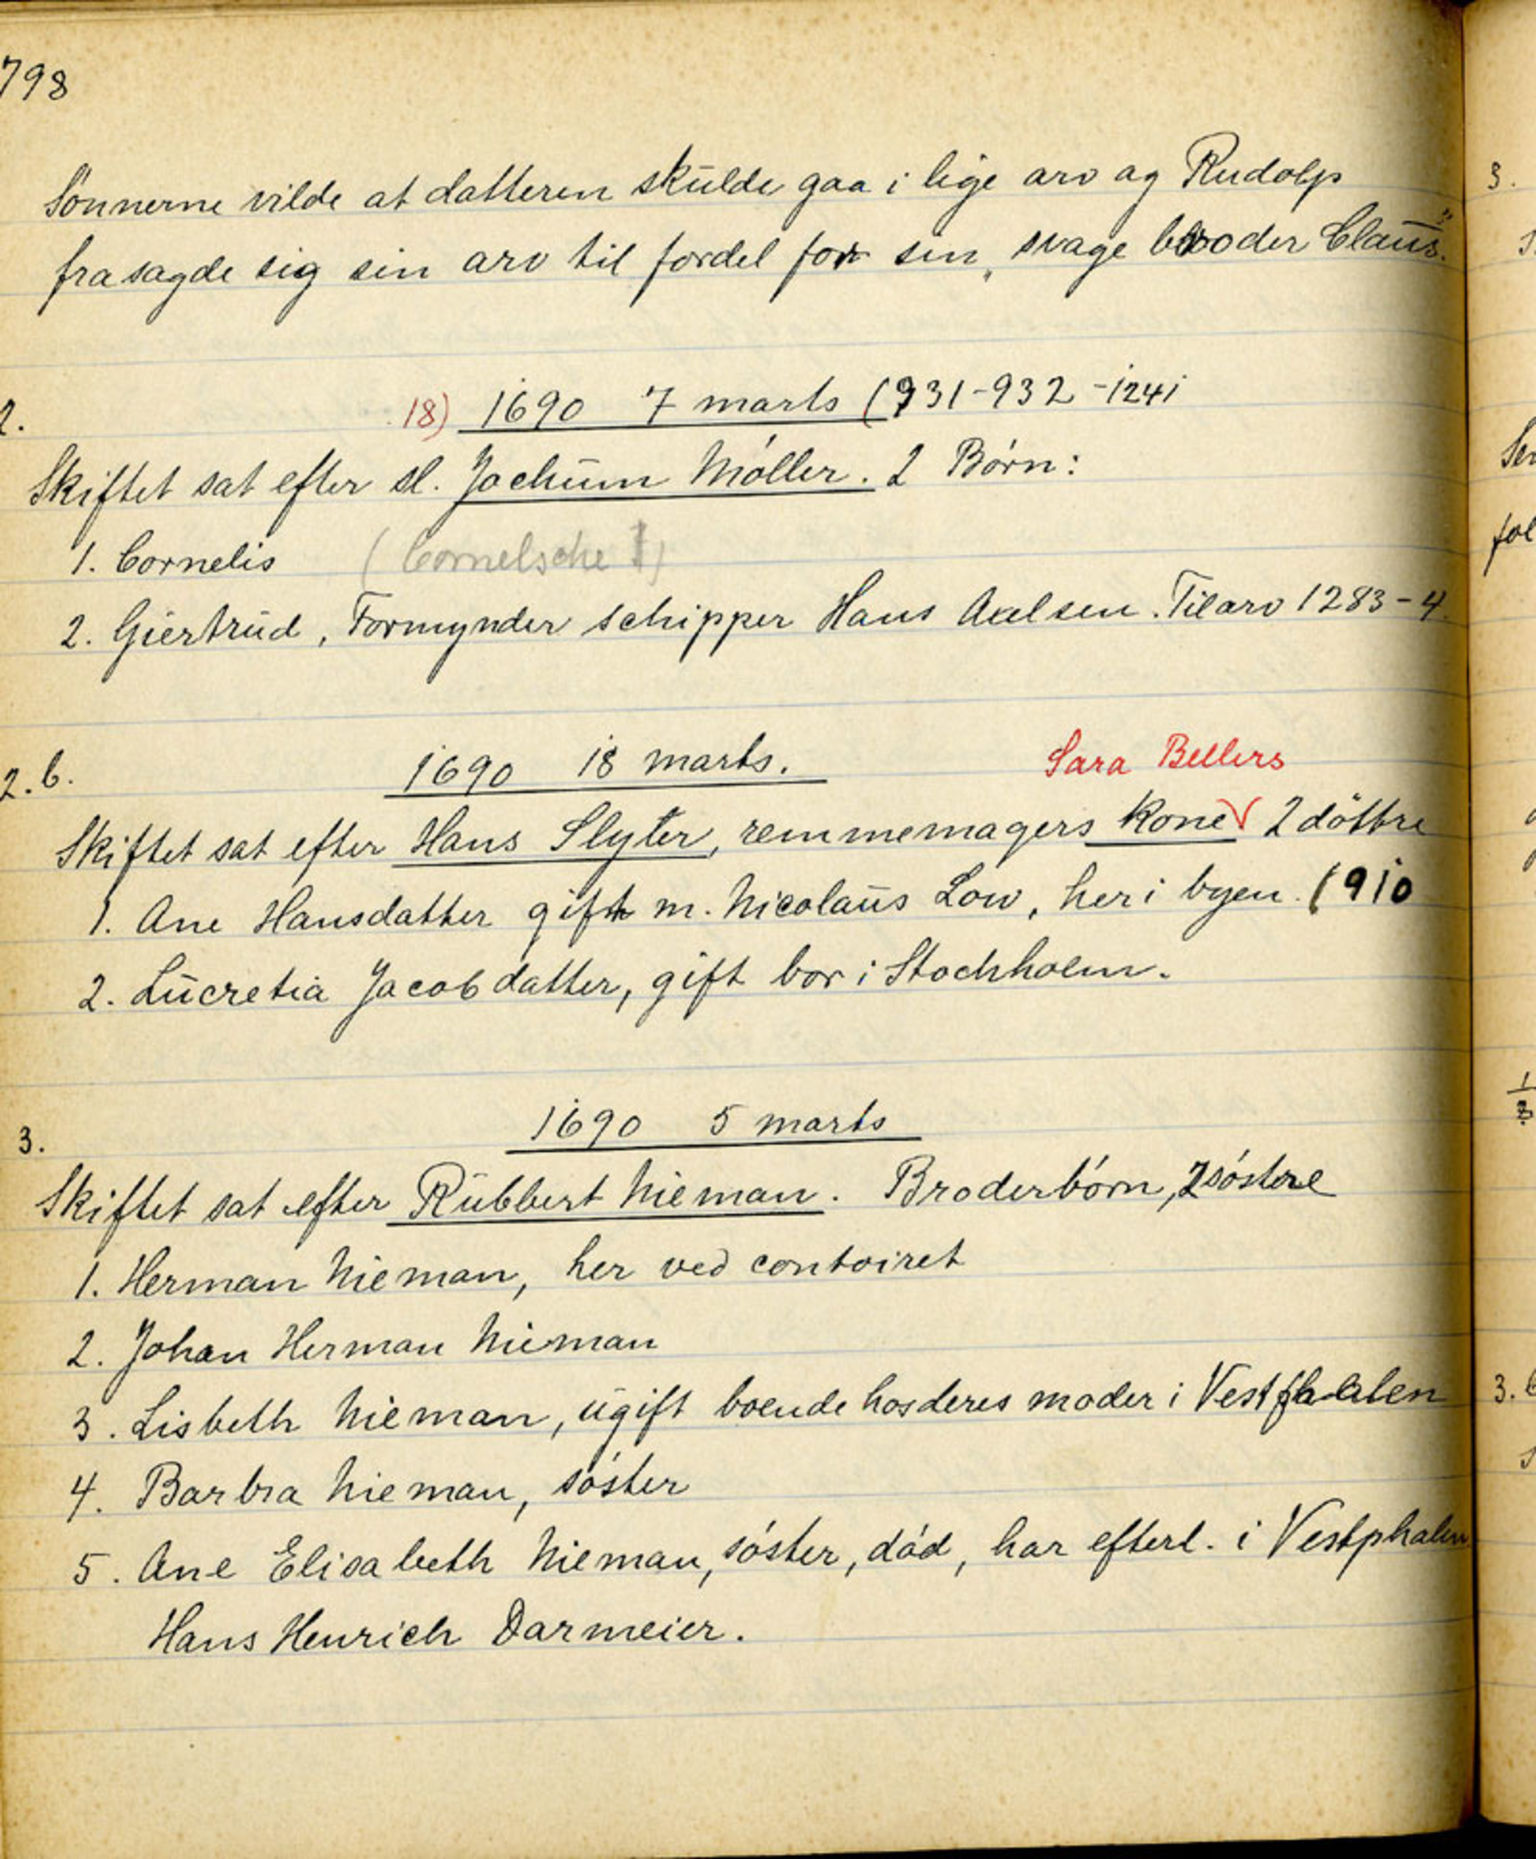 798
Sønnerne vilde at datteren skulde gaa i lige arv og Rudolp
frasagde sig sin arv til fordel for sin „svage broder Claus".
2.
18) 1690 7 marts (931-932-1241
Skiftet sat efter sl. Jochum Møller. 2 Børn:
1. Cornelis (Cornelsche
2. Giertrud, Formynder schipper Hans Axelsen. Tilarv 1283-4
2.b.
1690 18 marts. Sara Bellers
Skiftet sat efter Hans Slyter, remmemagers kone √ 2 döttre
1. Ane Hansdatter gift m. Nicolaus Low, her i byen. (910
2. Lucretia Jacobdatter, gift bor i Stochholm.
3.
1690 5 marts
Skiftet sat efter Rubbert Nieman. Broderbørn, 2 søstre
1. Herman Nieman, her ved contoiret
2. Johan Herman Nieman
3. Lisbeth Nieman, ugift boende hos deres moder i Vestphalen
4. Barbra Nieman, søster
5. Ane Elisabeth Nieman, søster, død, har efterl. i Vestphalen
Hans Henrich Darmeier.
3.
fol
3.